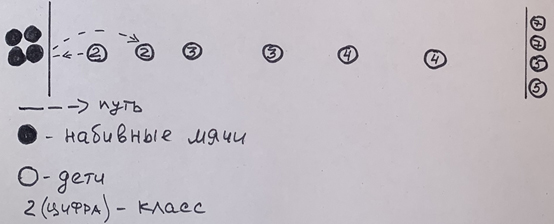 2 2 3 3 4 4
7
7
5
5
путь
- набивные мячи
- дети
2 (цифра) - класс